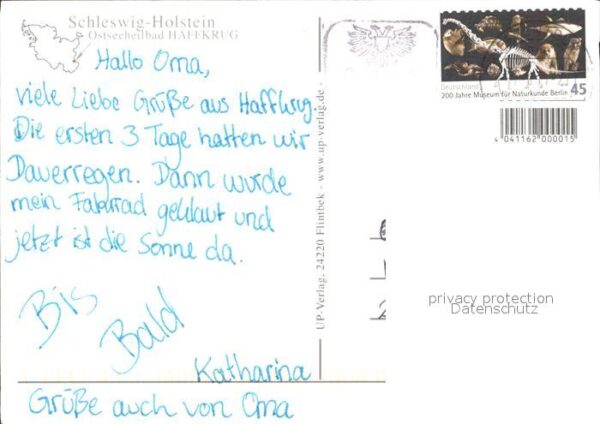 Schleswig-Holstein
Ostseeheilbad HAFFKRUG
Hallo Oma,
viele Liebe Grüße aus Haffkrug.
Die ersten 3 Tage hatten wir
Dauerregen. Dann wurde
mein Fahrrad geklaut und
jetzt ist die Sonne da.
Bis
Bald
Katharina
Grüße auch von Oma
UP-Verlag, 24220 Flintbek - www.up-verlag.de -
Deutschland
200 Jahre Museum für Naturkunde Berlin
45
4 041162 000015
privacy protection
Datenschutz